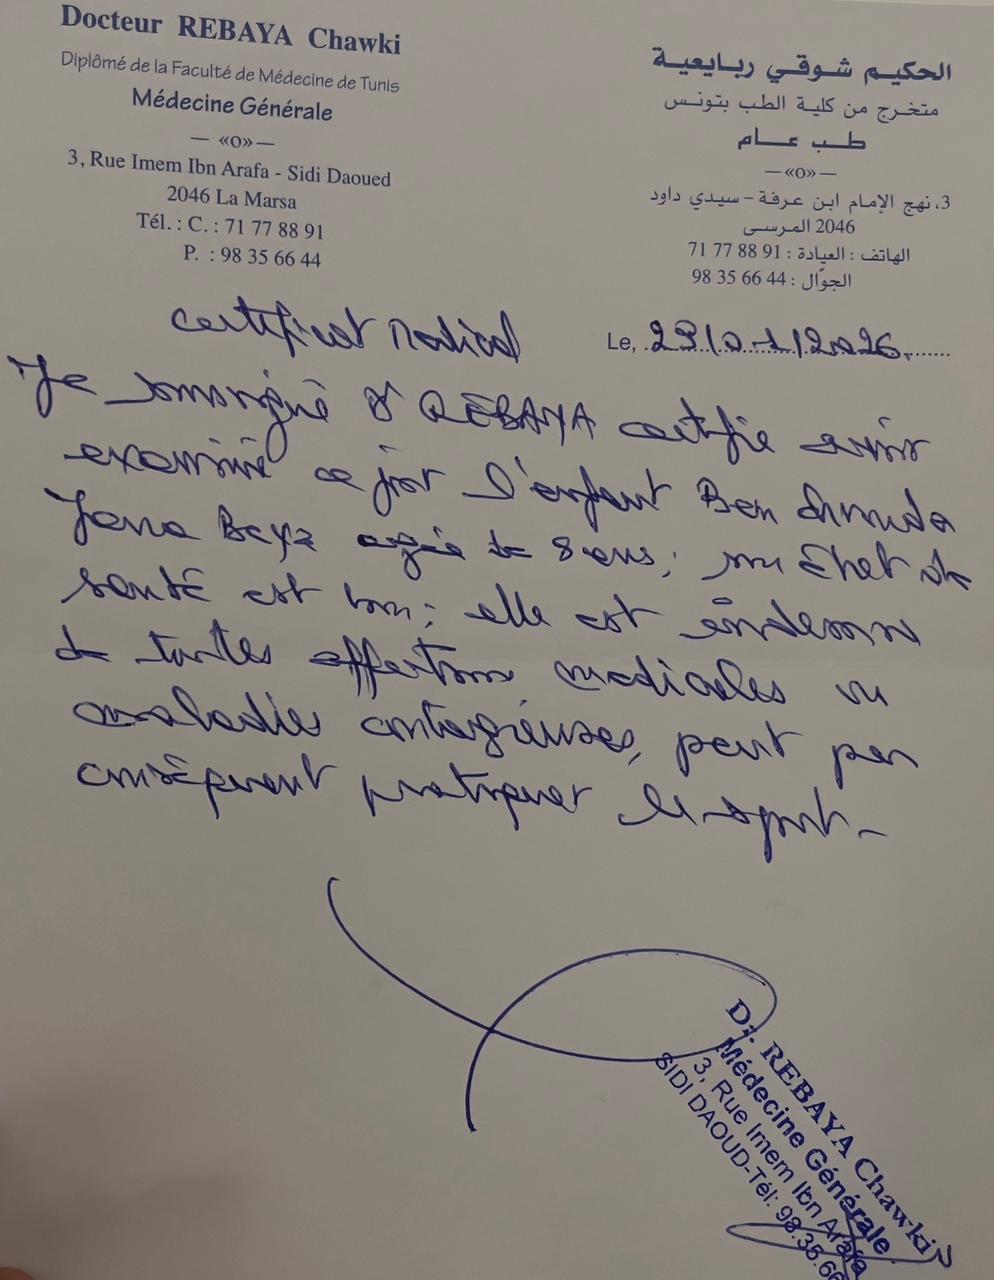 Docteur REBAYA Chawki
Diplômé de la Faculté de Médecine de Tunis
Médecine Générale
— «O» —
3, Rue Imem Ibn Arafa - Sidi Daoued
2046 La Marsa
Tél. : C. : 71 77 88 91
P. : 98 35 66 44
الحكيم شوقي ربايعية
متخرج من كلية الطب بتونس
طب عام
— «O» —
3، نهج الإمام ابن عرفة - سيدي داود
2046 المرسى
الهاتف : العيادة : 71 77 88 91
الجوّال : 98 35 66 44
certificat Medical
Le, 29/01/2026
Je soussigné Dr REBAYA certifie avoir
examiné ce jour l'enfant Ben
Beya agée de 8 ans ; son état de
santé est bon ; elle est indemne
de toutes affections médicales ou
maladies contagieuses, peut par
conséquent pratiquer le sport -
Dr. REBAYA Chawki
Médecine Générale
3, Rue Imem Ibn Arafa
SIDI DAOUD-Tél: 98.35.66